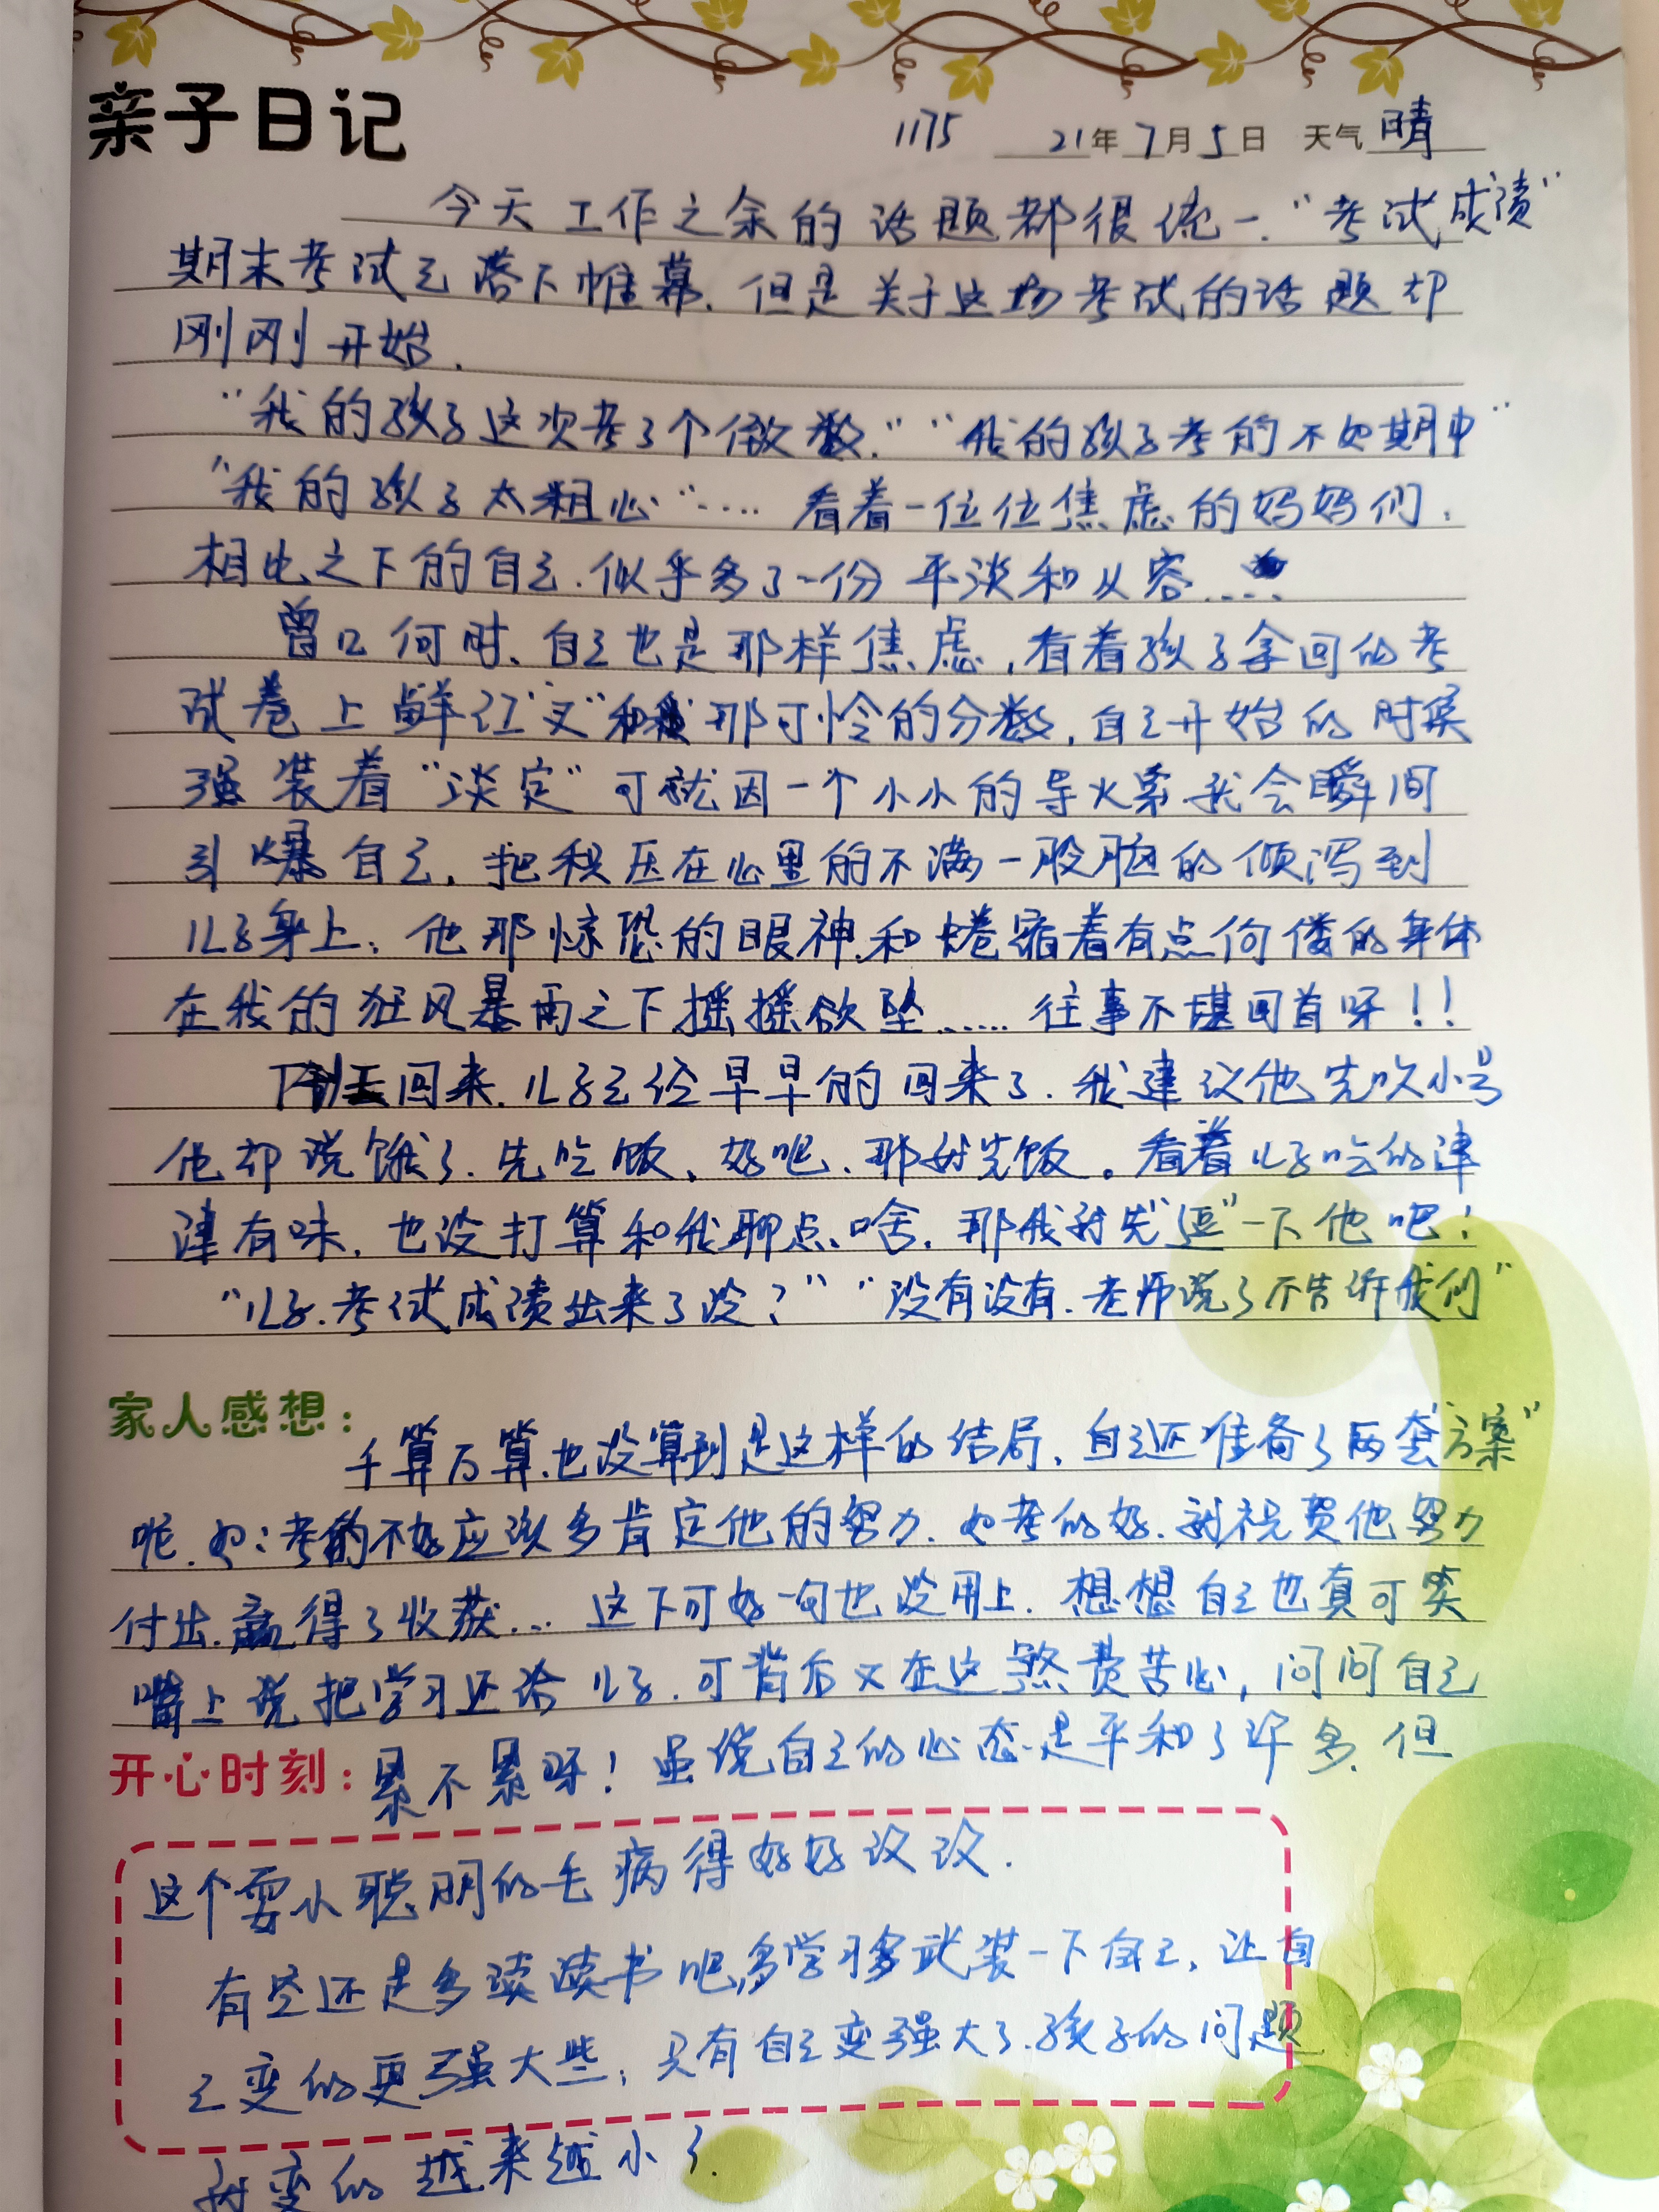 亲子日记
1175 21年7月5日 天气晴
今天工作之余的话题都很统一."考试成绩"
期末考试已落下帷幕.但是关于这场考试的话题却
刚刚开始.
"我的孩子这次考了个倣数.""我的孩子考的不如期中"
"我的孩子太粗心"....看着一位位焦虑的妈妈们,
相比之下的自己.似乎多了一份平淡和从容.....
曾几何时、自己也是那样焦虑,看着孩子拿回的考
试卷上鲜红"叉"和那可怜的分数,自己开始的时候
强装着"淡定"可就因一个小小的导火索我会瞬间
引爆自己,把积压在心里的不满一股脑的倾泻到
儿子身上,他那惊恐的眼神.和蜷缩着有点佝偻的身体
在我的狂风暴雨之下摇摇欲坠.....往事不堪回首呀!!
下班回来.儿子已经早早的回来了.我建议他先吹小号
他却说饿了.先吃饭、好吧、那就先饭。看着儿子吃的津
津有味.也没打算和我聊点啥.那我就先"逗"一下他吧!
"儿子.考试成绩出来了没?""没有没有.老师说了不告诉我们"
家人感想:
千算万算.也没算到是这样的结局,自己还准备了两套"方案"
呢.如:考的不好应该多肯定他的努力.如考的好.就祝贺他努力
付出.赢得了收获...这下可好一句也没用上.想想自己也真可笑
嘴上说把学习还给儿子.可背后又在这煞费苦心,问问自己
开心时刻:累不累呀!虽说自己的心态是平和了许多.但
这个耍小聪明的毛病得好好改改.
有空还是多读读书吧,多学习多武装一下自己,让自
己变的更强大些,只有自己变强大了.孩子的问题
就变的越来越小了.